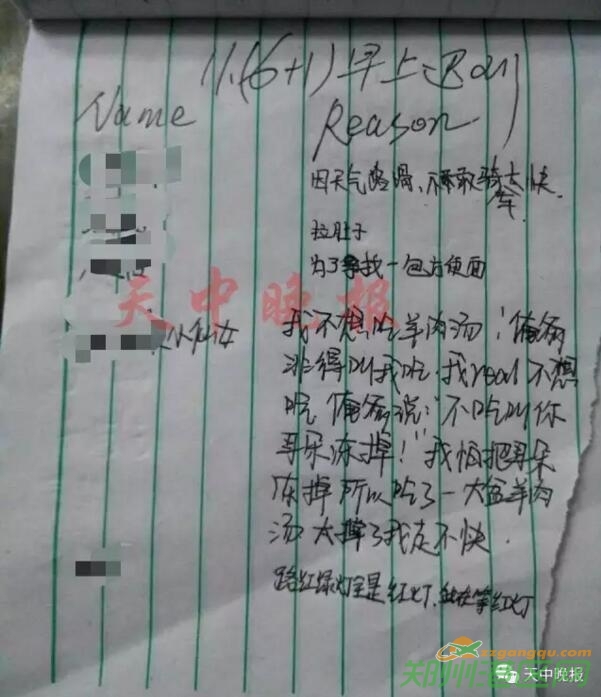 11.(6+1)早上迟到
Name Reason
因天气路滑,不敢骑太快
车.
拉肚子
为了寻找一包方便面
天中晚报
小仙女 我不想吃羊肉汤!俺爷
非得叫我吃.我real不想
吃 俺爷说:"不吃叫你
耳朵冻掉!"我怕把耳朵
冻掉 所以吃了一大盆羊肉
汤 太撑了我走不快.
路红绿灯全是红灯.我在等红灯
zzgangqu.com
天中晚报